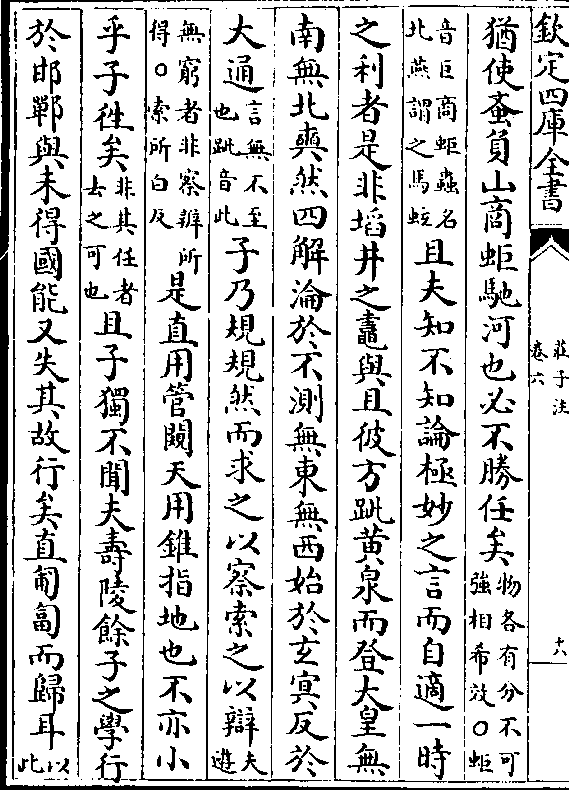 欽定四庫全書
莊子注
卷六
十八
猶使蚉負山商蚷馳河也必不勝任矣物各有分不可強相希效○蚷
音巨商蚷蟲名北燕謂之馬蚿且夫知不知論極妙之言而自適一時
之利者是非埳井之鼃與且彼方跐黃泉而登大皇無
南無北奭然四解淪於不測無東無西始於玄冥反於
大通言無不至也跐音此子乃規規然而求之以察索之以辯夫遊
無窮者非察辯所得○索所白反是直用管闚天用錐指地也不亦小
乎子徃矣非其任者去之可也且子獨不聞夫壽陵餘子之學行
於邯鄲與未得國能又失其故行矣直匍匐而歸耳以此